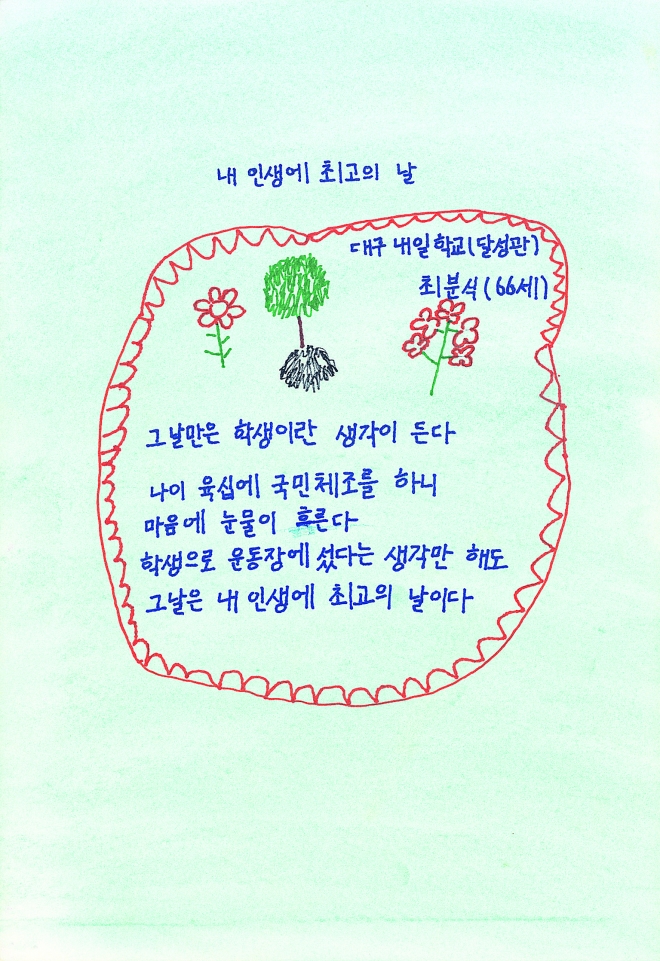 내 인생에 최고의 날
대구 내일 학교(달성관)
최분식(66세)
그날만은 학생이란 생각이 든다
나이 육십에 국민체조를 하니
마음에 눈물이 흐른다
학생으로 운동장에 섰다는 생각만 해도
그날은 내 인생에 최고의 날이다